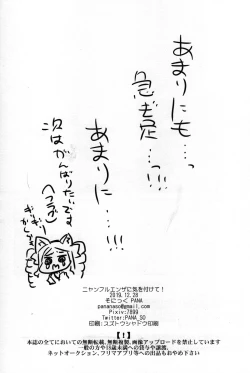 あまりにも…
急ぎ足…っ!!
あまりに…!!!
次はがんばりたいです
ニャンフルエンザに気を付けて！
2019.12.28
そにっく PANA
pananaso@gmail.com
Pixiv:7899
Twitter:PANA_SO
印刷：スズトウシャドウ印刷
【！】
本誌の全てにおいての無断転載、無断複製、画像アップロードを禁止しています
一般の方や18歳未満への貸与や譲渡、
ネットオークション、フリマアプリ等への出品もおやめ下さい